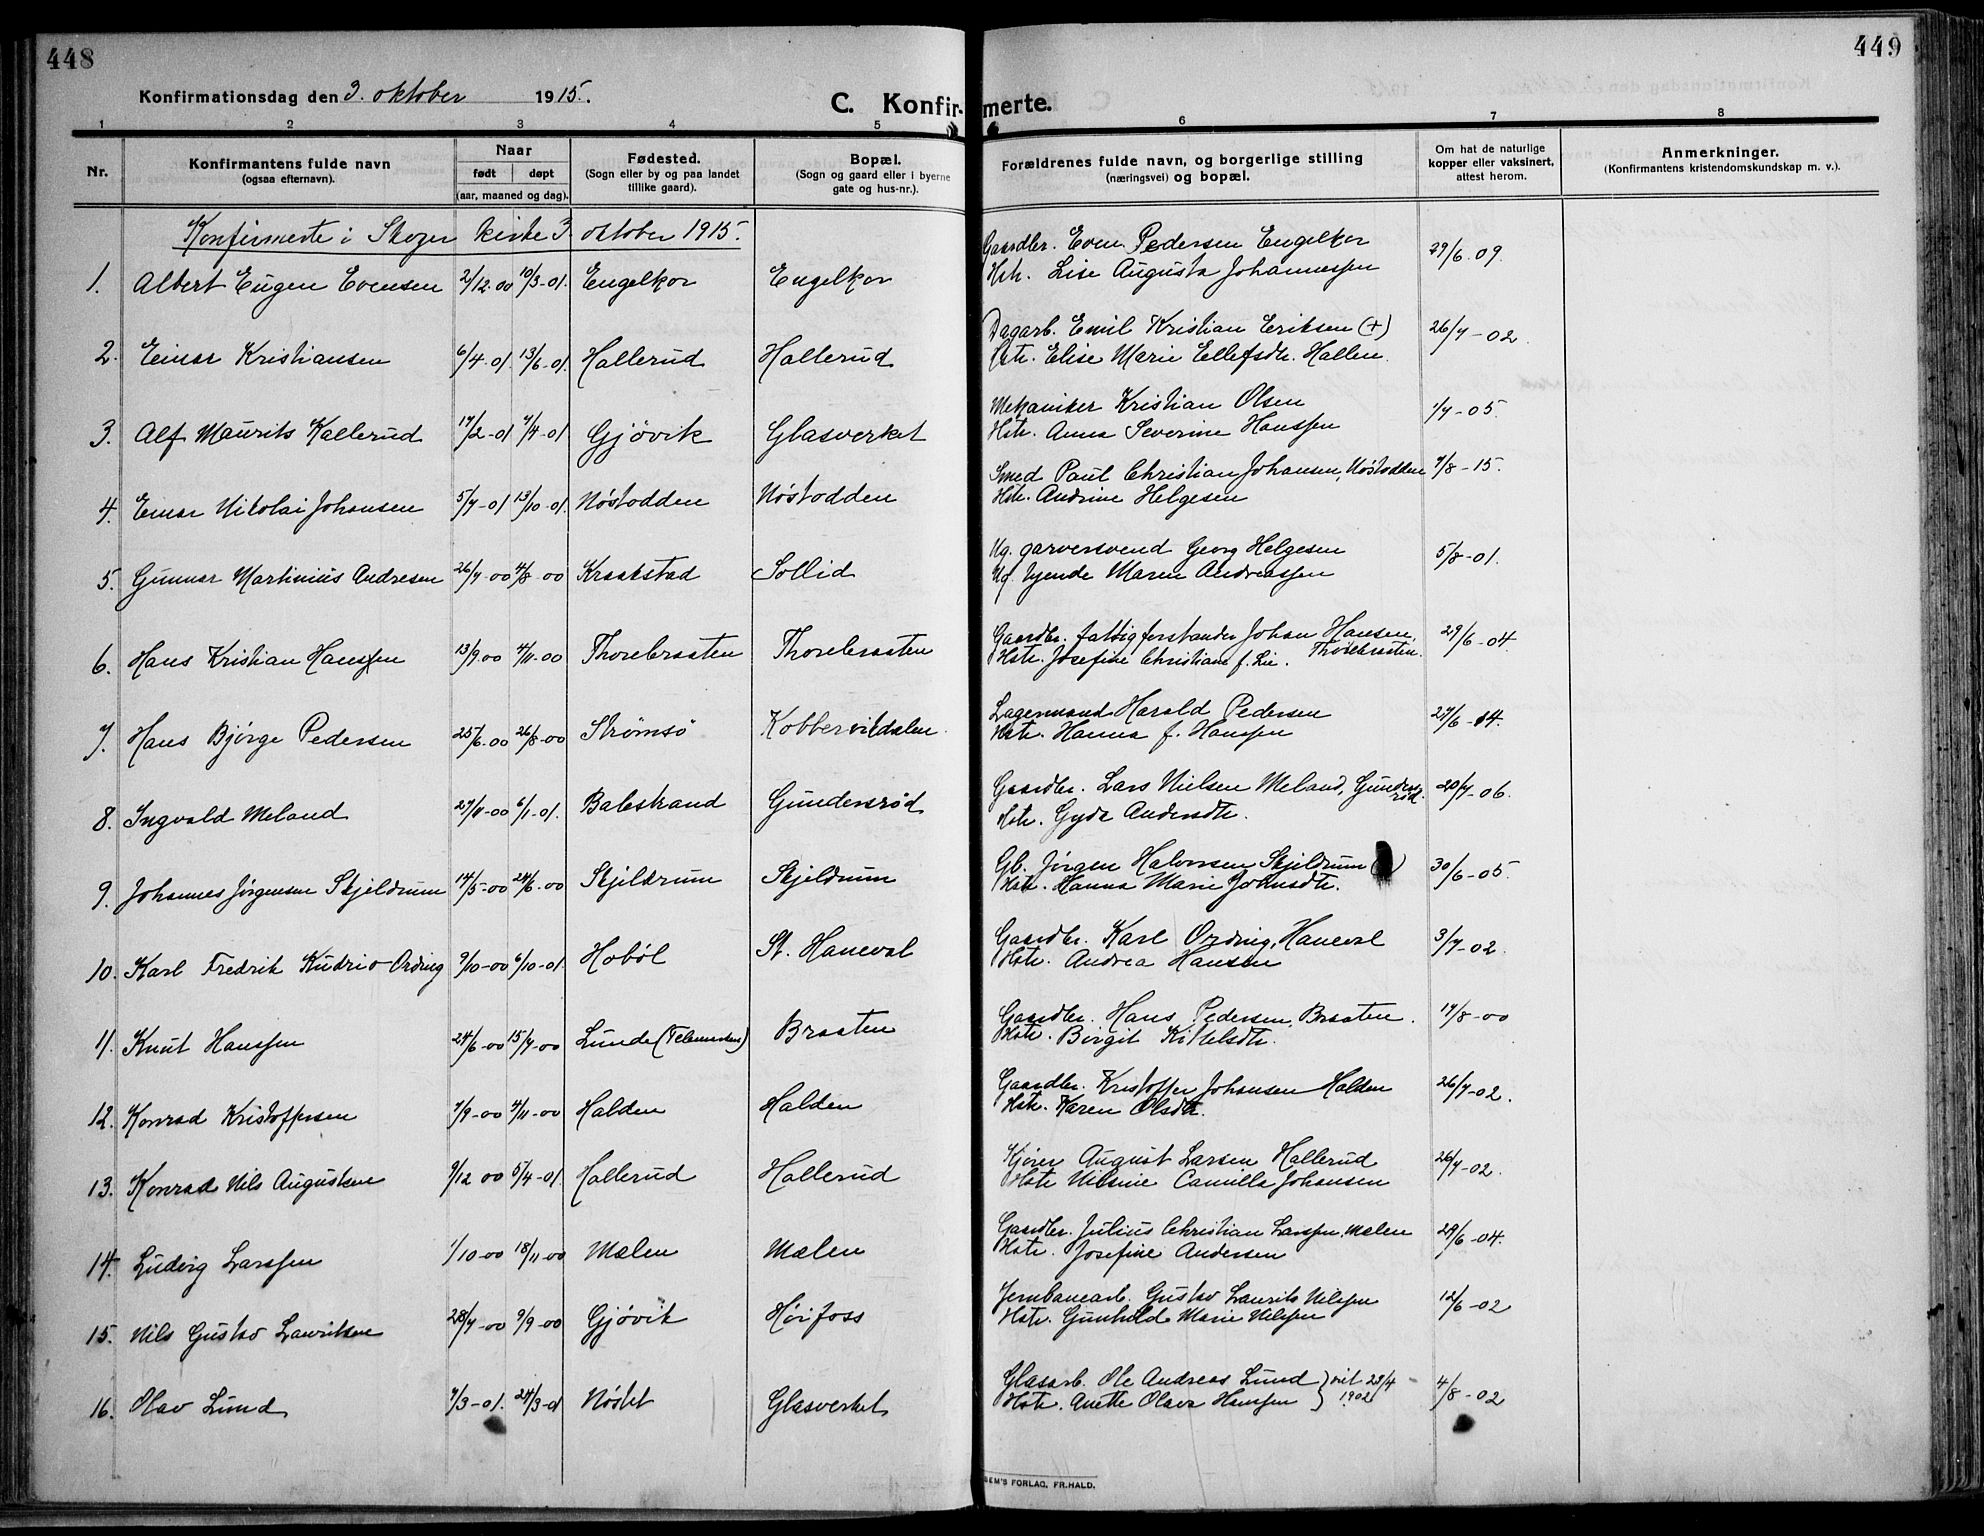 448
449
Konfirmationsdag den 3. oktober 1915.
C. Konfirmerte.
1 2 3 4 5 6 7 8
Nr.
Konfirmantens fulde navn
(ogsaa efternavn).
Naar
født døpt
(aar, maaned og dag).
Fødested.
(Sogn eller by og paa landet
tillike gaard).
Bopæl.
(Sogn og gaard eller i byerne
gate og hus-nr.).
Forældrenes fulde navn, og borgerlige stilling
(næringsvei) og bopæl.
Om hat de naturlige
kopper eller vaksinert,
attest herom.
Anmerkninger.
(Konfirmantens kristendomskundskap m. v.).
Konfirmerte i Skoger kirke 3 oktober 1915.
Gaardbr. Even Pedersen Engelkor
1. Albert Eugen Evensen 2/12 00 10/3-01. Engelkor Engelkor Hstr. Lise Augusta Johannessen 29/6.09.
Dagarb. Emil Kristian Eriksen (+)
2. Einar Kristiansen 6/4-01. 13/6-01. Hallerud Hallerud Hstr. Elise Marie Ellefsdtr. Hallen. 26/7-02.
Mekaniker Kristian Olsen
3. Alf Maurits Kallerud 17/2-01 7/4-01 Gjøvik Glasverket Hstr. Anna Severine Hanssen 1/7-05.
Smed Paul Christian Johansen, Nøstodden
4. Einar Nikolai Johansen 5/7-01 13/10-01. Nøstodden Nøstodden Hstr. Andrine Helgesen 7/8-15.
Ug. garversvend Georg Helgesen
5. Gunnar Martinius Andresen 26/7-00 4/8-00 Kraakstad Sollid Ug. tjende Maren Andreassen 5/8-01.
Gaardbr. fattigforstander Johan Hansen, Thorebraaten.
6. Hans Kristian Hanssen 13/9 00 4/11-00 Thorebraaten Thorebraaten Hstr. Josefine Christiane f. Lie. 29/6-04.
Lagermand Harald Pedersen
7. Hans Bjørge Pedersen 25/6-00 26/8-00 Strømsø Kobbervikdalen Hstr. Hanna f. Hanssen 27/6-14.
Gaardbr. Lars Nielsen Meland, Gundersrød.
8. Ingvald Meland 27/11-00 6/1-01. Balestrand Gundersrød Hstr. Gyda Andersdtr. 20/7-06.
Gb. Jørgen Halvorsen Skjeldrum
9. Johannes Jørgensen Skjeldrum 14/5-00 24/6-00 Skjeldrum Skjeldrum Hstr. Hanna Marie Johnsdtr. 30/6-05.
Gaardbr. Karl Ording, Haneval
10. Karl Fredrik Kudrio Ording 9/10-00 6/10-01. Hobøl St. Haneval Hstr. Andrea Hansen 3/7-02.
Gaardbr. Hans Pedersen, Braaten.
11. Knut Hanssen 24/6-00 15/7-00 Lunde (Telemarken) Braaten Hstr. Birgit Kittelsdtr. 17/8-00
Gaardbr. Kristoffer Johansen Halden
12. Konrad Kristoffersen 7/9-00 4/11-00 Halden Halden Hstr. Karen Olsdtr. 26/7-02.
Kjører August Larsen Hallerud
13. Konrad Nils Augustsen 9/12 00 5/4-01. Hallerud Hallerud Hstr Nilsine Camilla Johansen 26/7-02.
Gaardbr. Julius Christian Larssen, Mælen
14. Ludvig Larssen 1/10-00 18/11-00 Mælen Mælen Hstr. Josefine Andersen 29/6-04.
Jernbanearb. Gustav Laurits Nilssen
15. Nils Gustav Lauritsen 28/7-00 9/9-00 Gjøvik Høifoss Hstr. Gunhild Marie Nilssen 12/6-02
Glasarb. Ole Andreas Lund } vit 23/4
16. Olav Lund 7/3-01. 24/3-01 Nøstet Glasverket Hstr. Anette Olava Hanssen } 1902 4/8-02
SEM'S FORLAG, FR.HALD.